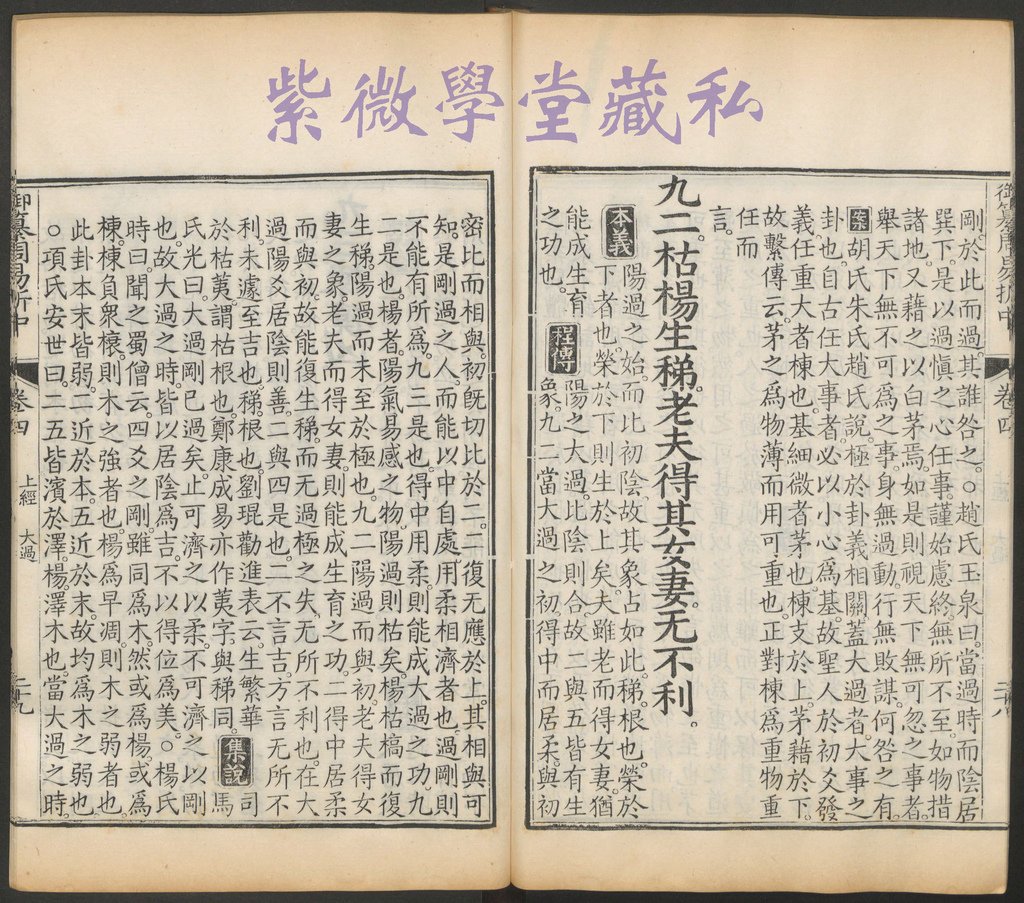 紫微學堂藏私
剛於此而過其誰咎之。○趙氏玉泉曰。當過時而陰居
巽下是以過慎之心任事。謹始慮終。無所不至。如物措
諸地。又藉之以白茅焉。如是則視天下無可忽之事者。
舉天下無不可爲之事。身無過動。行無敗謀。何咎之有。
案胡氏朱氏趙氏說。極於卦義相關。蓋大過者大事之
卦也。自古任大事者。必以小心爲基。故聖人於初爻發
義任重大者棟也。基細微者茅也。棟支於上。茅藉於下。
故繫傳云。茅之爲物薄。而用可重也。正對棟爲重物重
任而
言。
九二枯楊生稊。老夫得其女妻。无不利。
本義陽過之始。而比初陰。故其象占如此。稊。根也。榮於
下者也。榮於下。則生於上矣。夫雖老而得女妻。猶
能成生育
之功也。
程傳陽之大過。比陰則合。故二與五皆有生
象。九二當大過之初。得中而居柔。與初
密比而相與。初旣切比於二。二復无應於上。其相與可
知。是剛過之人。而能以中自處。用柔相濟者也。過剛則
不能有所爲。九三是也。得中用柔。則能成大過之功。九
二是也。楊者。陽氣易感之物。陽過則枯矣。楊枯槁而復
生稊。陽過而未至於極也。九二陽過而與初。老夫得女
妻之象。老夫而得女妻。則能成生育之功。二得中居柔
而與初。故能復生稊。而无過極之失。无所不利也。在大
過陽爻居陰則善。二與四是也。二不言吉。方言无所不
利。未遽至吉也。稊。根也。劉琨勸進表云。生繁華
於枯荑。謂枯根也。鄭康成易亦作荑字。與稊同。集說司馬
氏光曰。大過剛已過矣。止可濟之以柔。不可濟之以剛
也。故大過之時。皆以居陰爲吉。不以得位爲美。○楊氏
時曰。聞之蜀僧云。四爻之剛。雖同爲木。然或爲楊。或爲
棟。棟負衆榱。則木之強者也。楊爲早凋。則木之弱者也。
此卦本末皆弱。二近於本。五近於末。故均爲木之弱也。
○項氏安世曰。二五皆濱於澤。楊。澤木也。當大過之時。
御纂周易折中
卷四
上經 大過
二十九